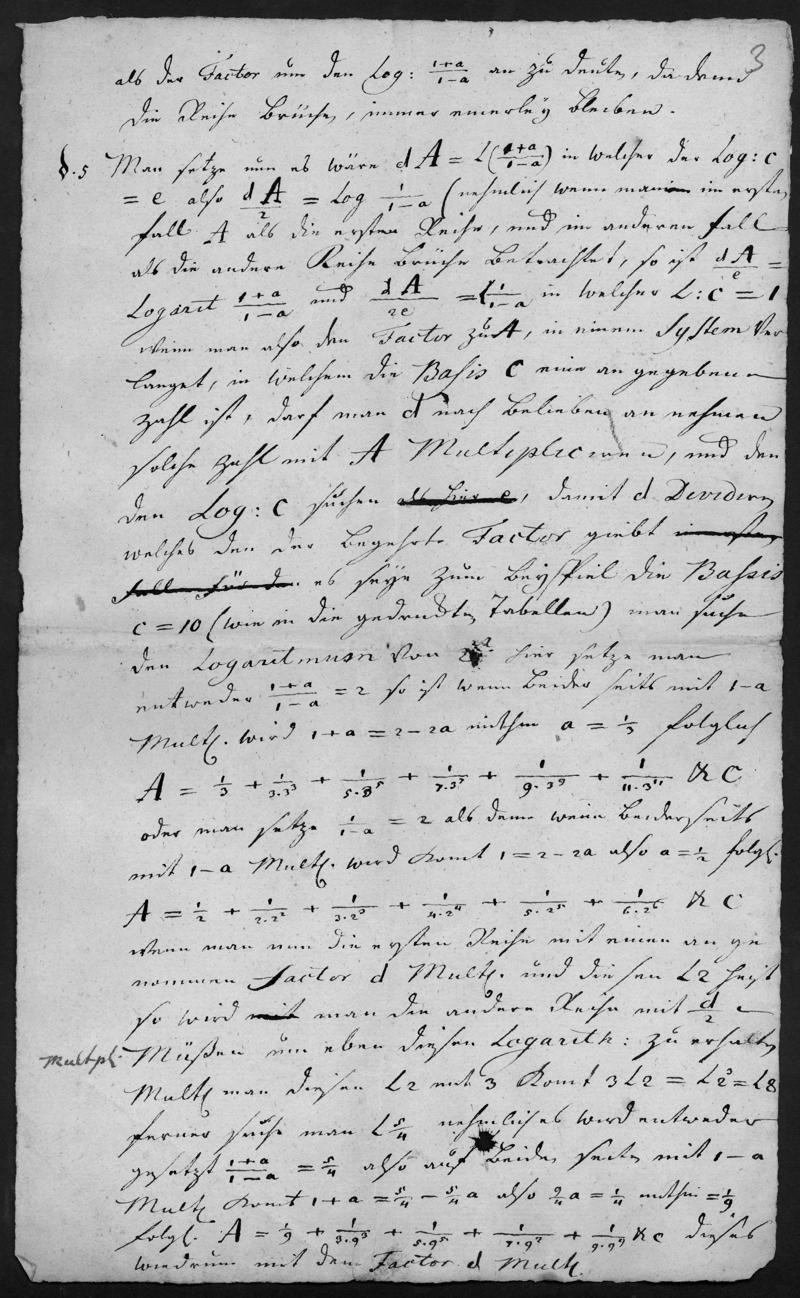 3
als der Factor um den Log: 1+a/1-a an zu deuten, da denn
die Reihe Brüche, immer einerley bleiben.
§.5 Man setze nun es wäre d A = L(1+a/1-a) in welcher der Log: c
= e also dA/2 = Log 1/1-a (nehmlich wenn man im ersten
fall A als die ersten Reihe, und im anderen fall
als die andere Reihe Brüche betrachtet, so ist dA/e =
Logarit 1+a/1-a und dA/2e = L 1/1-a in welcher L: c = 1
wenn man also den Factor zu A, in einem System ver
langet, in welchem die Basis c eine an gegebene
zahl ist, darf man d nach belieben an nehmen
solche zahl mit A Multipliciren, und den
den Log: c suchen als hier e, damit d Dividiren
welches den der begehrte Factor giebt
fall für den es seye zum beyspiel die Bassis
c = 10 (wie in die gedruckten Tabellen) man suche
den Logaritmum von 2 hier setze man
entweder 1+a/1-a = 2 so ist wenn beider seits mit 1-a
Multl. wird 1+a = 2-2a mithin a = 1/3 folglich
A = 1/3 + 1/3.3³ + 1/5.3⁵ + 1/7.3⁷ + 1/9.3⁹ + 1/11.3¹¹ &c
oder man setze 1/1-a = 2 als denn wenn beiderseits
mit 1-a Multl. wird komt 1 = 2-2a also a = 1/2 folgl.
A = 1/2 + 1/2.2² + 1/3.2³ + 1/4.2⁴ + 1/5.2⁵ + 1/6.2⁶ &c
wenn man nun die ersten Reihe mit einen an ge
nommen factor d Multl. und diesen L2 heist
so wird mit man die andere Reihe mit d/2
Multpl. Müßen um eben diesen Logarith: zu erhalten
Multl man diesen L2 mit 3 komt 3L2 = L2³ = L8
ferner suche man L 5/4 nehmlich es wird entweder
gesetzt 1+a/1-a = 5/4 also auf beiden seiten mit 1-a
Multl komt 1+a = 5/4 - 5/4a also 9/4a = 1/4 mithin = 1/9
folgl. A = 1/9 + 1/3.9³ + 1/5.9⁵ + 1/7.9⁷ + 1/9.9⁹ &c dieses
wiedrum mit dem Factor d Multl.